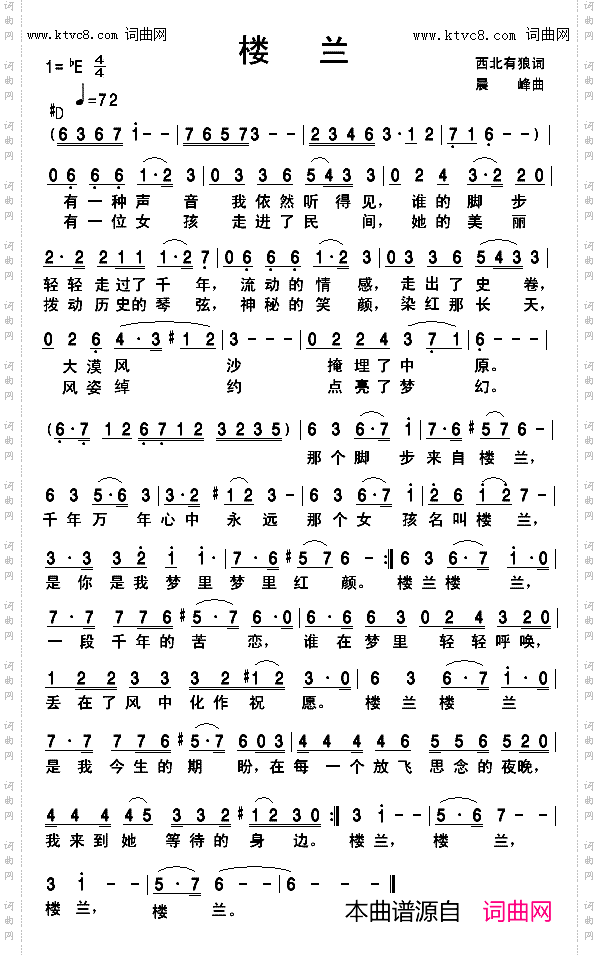 www.ktvc8.com 词曲网
www.ktvc8.com 词曲网
楼 兰
1= ♭E 4/4
西北有狼词
晨 峰曲
♩=72
#D
(6 3 6 7 i - - | 7 6 5 7 3 - - | 2 3 4 6 3 · 1 2 | 7 1 6 - - ) |
0 6 6 6 1 · 2 3 | 0 3 3 6 5 4 3 3 | 0 2 2 4 3 · 2 2 0 |
有一种声 音 我依然听得见, 谁的脚步
有一位女 孩 走进了民 间, 她的美丽
2 · 2 2 1 1 1 1 · 2 7 | 0 6 6 6 1 · 2 3 | 0 3 3 6 5 4 3 3 |
轻轻走过了千年, 流动的情 感, 走出了史 卷,
拨动历史的琴弦, 神秘的笑 颜, 染红那长 天,
0 2 6 4 · 3 #1 2 | 3 - - - | 0 2 2 4 3 7 1 | 6 - - - |
大漠风 沙 掩埋了中 原。
风姿绰 约 点亮了梦 幻。
(6 · 7 1 2 6 7 1 2 3 2 3 5 ) | 6 3 6 · 7 i | 7 · 6 #5 7 6 - |
那个脚 步来自楼 兰,
6 3 5 · 6 3 | 3 · 2 #1 2 3 - | 6 3 6 · 7 i | 2 6 i 2 7 - |
千年万 年心中 永 远 那个女 孩名叫楼 兰,
3 · 3 3 2 i i | 7 · 7 #5 7 6 6 - :| 6 3 6 · 7 i · 0 |
是你是我梦里梦里红 颜。 楼兰楼 兰,
7 · 7 7 7 6 #5 · 7 6 · 0 | 6 · 6 6 6 3 0 2 4 3 2 0 |
一段千年的苦 恋, 谁在梦里 轻轻呼唤,
1 2 2 3 3 3 2 #1 2 | 3 - 3 · 0 | 6 3 6 · 7 | i - i · 0 |
丢在了风中化作祝 愿。 楼兰楼 兰
7 · 7 7 7 6 #5 · 7 6 0 3 | 4 4 4 4 4 6 5 5 6 5 2 0 |
是我今生的期 盼,在每一个放飞思念的夜晚,
4 4 4 4 5 3 3 2 #1 2 3 0 :| 3 i - - | 5 · 6 7 - - |
我来到她 等待的身 边。 楼兰, 楼 兰,
3 i - - | 5 · 6 7 6 - - | 6 - - - ‖
楼兰, 楼 兰。
本曲谱源自 词曲网